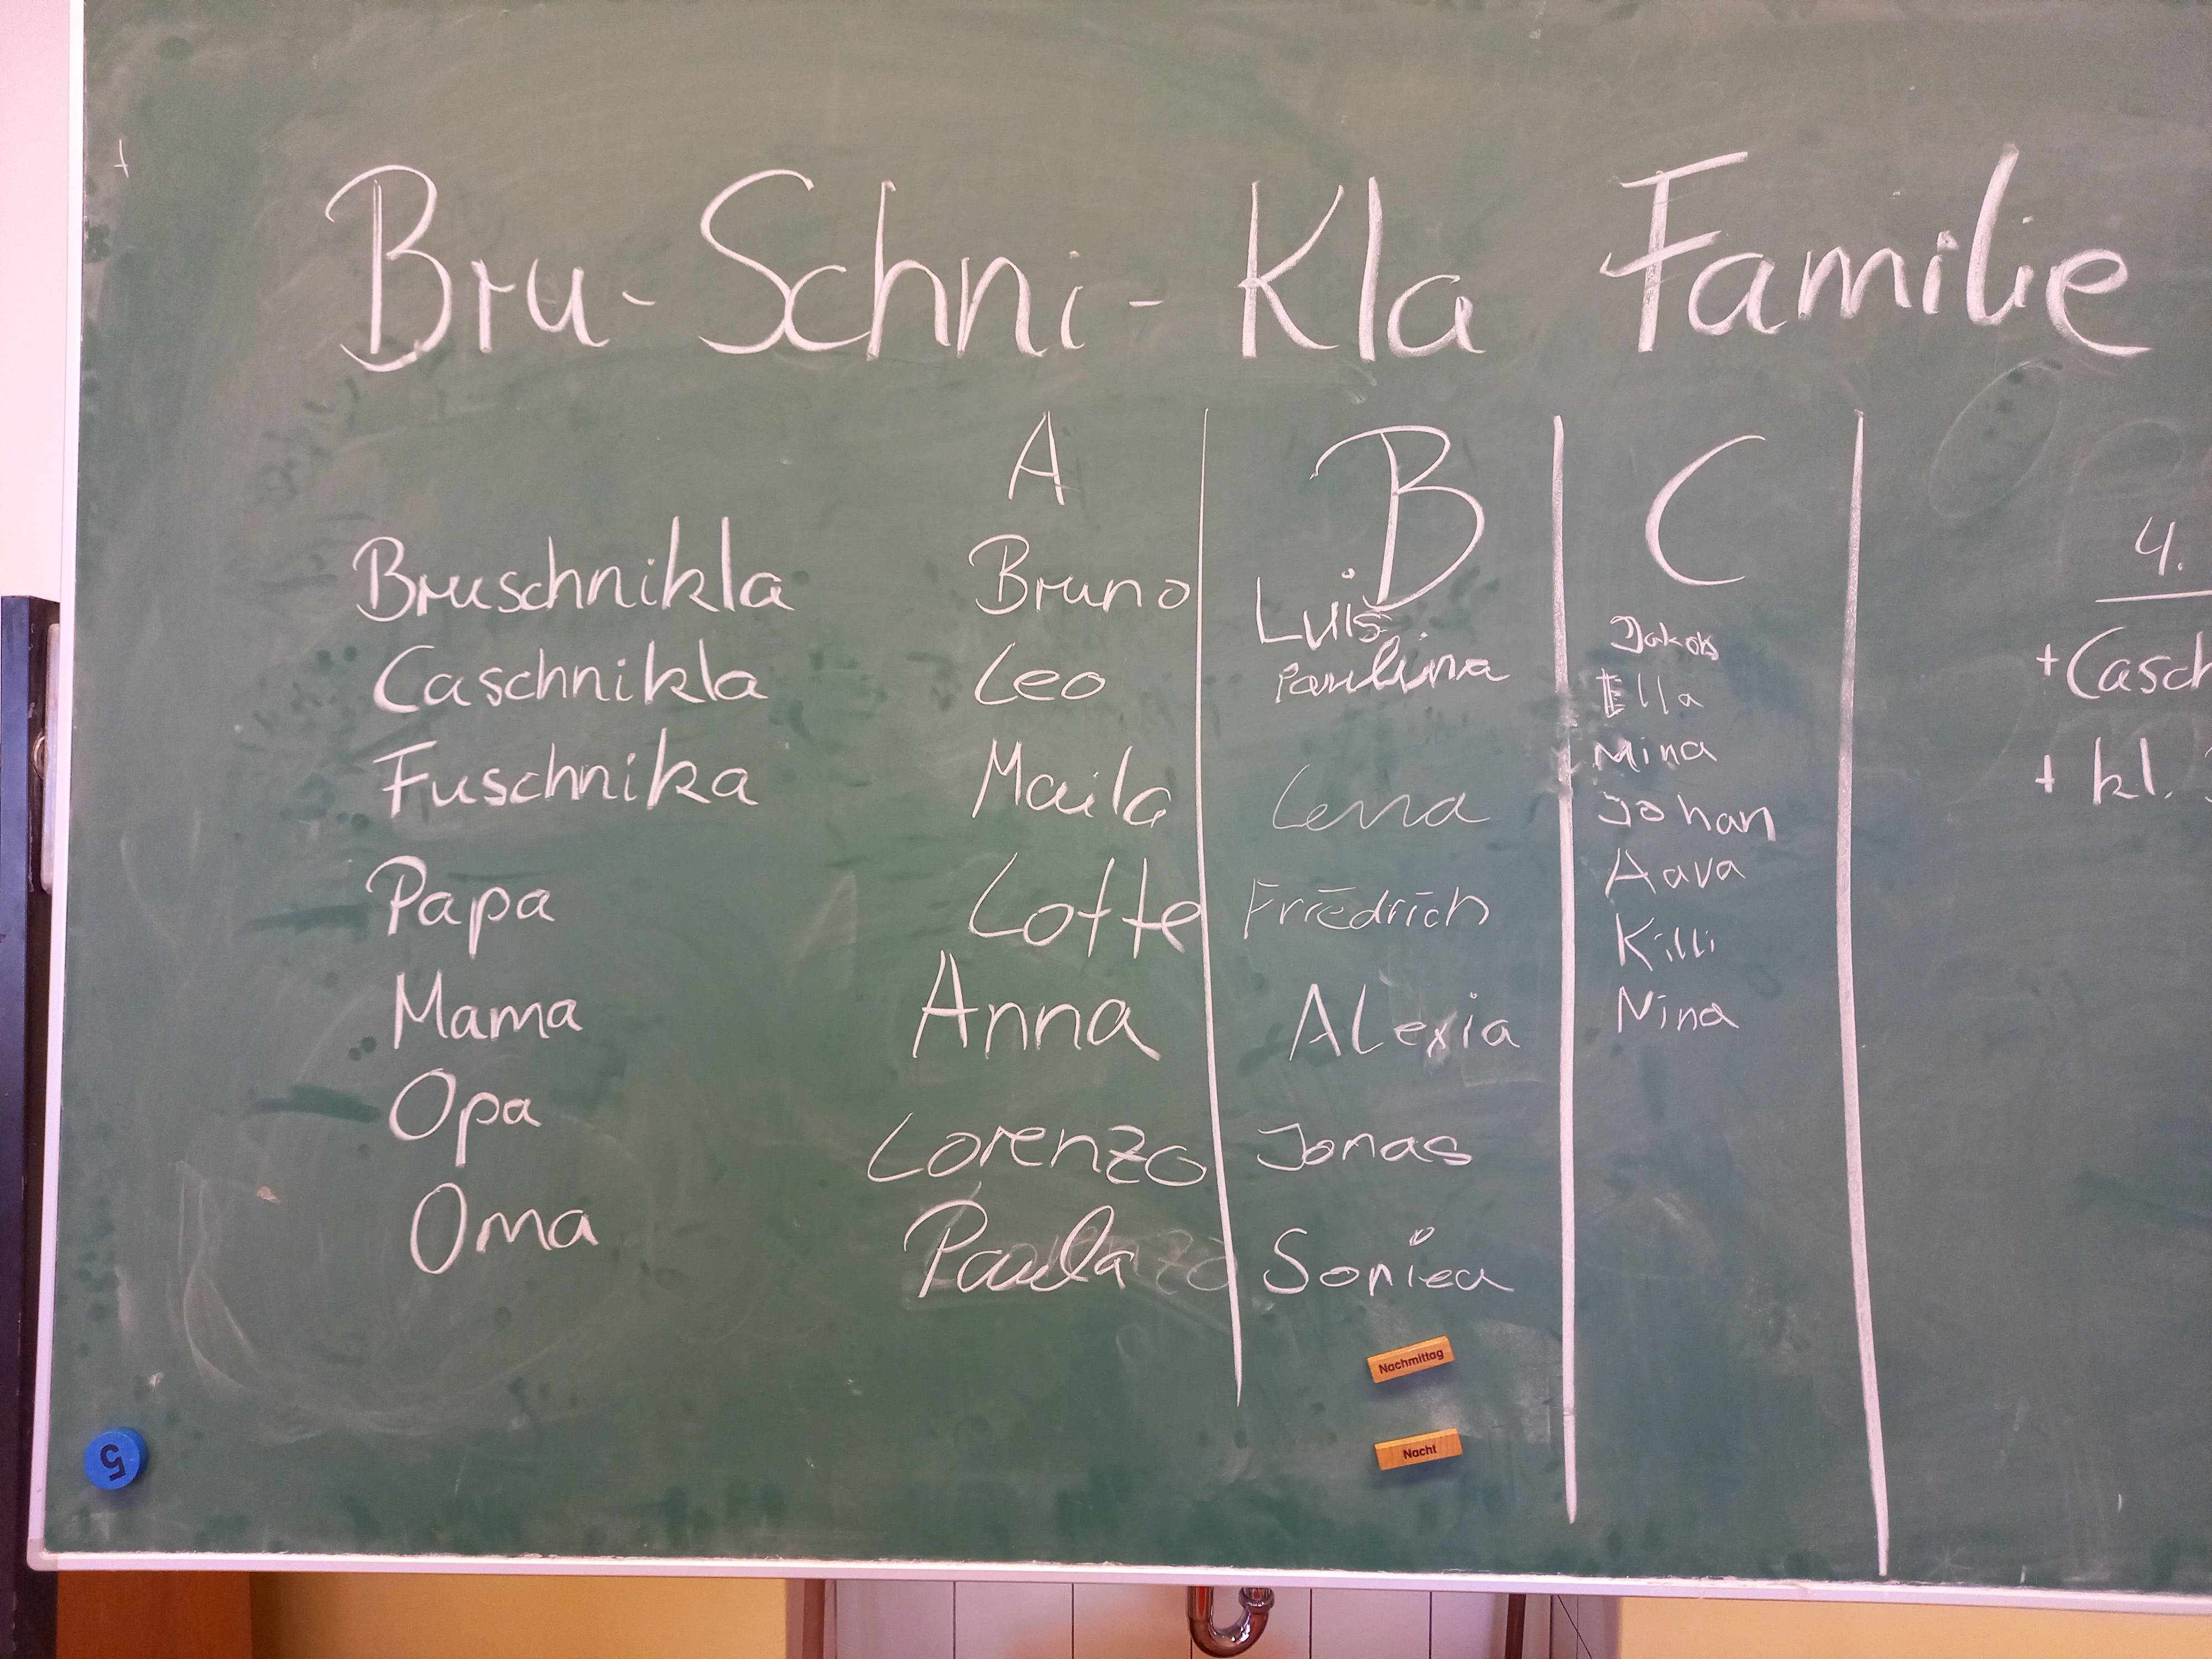 Bru-Schni-Kla Familie
A B C
Bruschnikla Bruno Luis Jakob
Caschnikla Leo Paulina Ella
Fuschnika Maila Lena Mina
Johan
Papa Lotte Friedrich Aava
Killi
Mama Anna Alexia Nina
Opa Lorenzo Jonas
Oma Paula
4.
+Casch
+ kl.
Nachmittag
Nacht
5